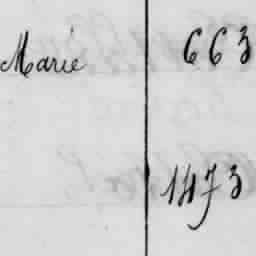 Marie 663
1473